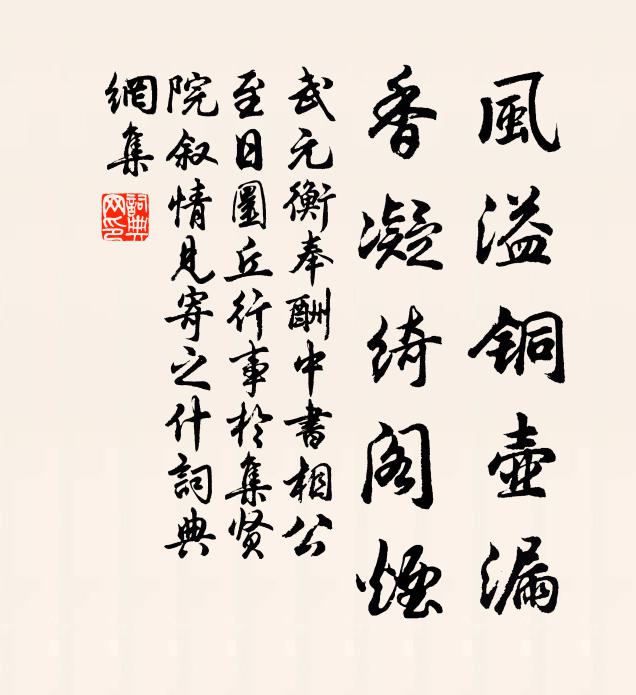 風溢铜壶漏
香凝绮阁煙
武元衡奉酬中書相公
至日圜丘行事於集贤
院叙情見寄之什詞典
網集
詞典
网印